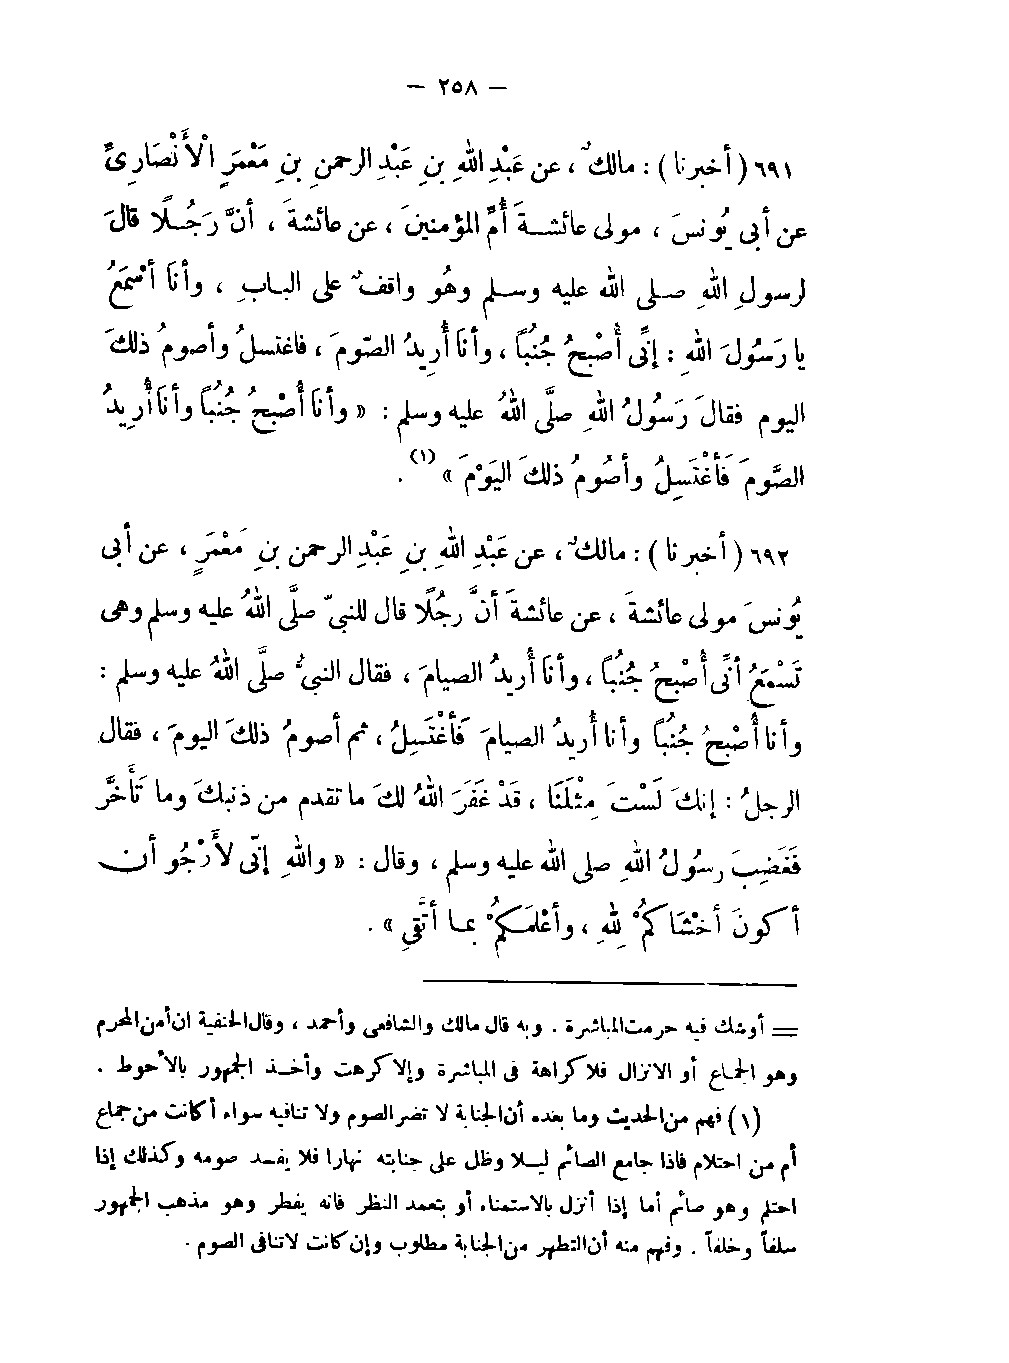 — ٢٥٨ —
٦٩١ (أخبرنا) : مالكٌ ، عن عَبْدِ اللهِ بنِ عَبْدِ الرحمنِ بنِ مَعْمَرٍ الْأَنْصَارِيِّ
عن أبى يُونسَ ، مولى عائشةَ أُمِّ المؤمنينَ ، عن عائشةَ ، أنَّ رَجُلًا قالَ
لرسولِ اللهِ صلى الله عليه وسلم وهُو واقفٌ على البابِ ، وأنَا أسْمَعُ
يا رَسُولَ اللهِ : إنِّى أُصْبحُ جُنُباً ، وأنَا أُرِيدُ الصّومَ ، فاغتسلُ وأصومُ ذلكَ
اليوم فقالَ رَسُولُ اللهِ صلَّى اللهُ عليه وسلم : « وأنَا أُصْبِحُ جُنُباً وأنَا أُرِيدُ
الصَّومَ فَأَغْتَسِلُ وأصُومُ ذلكَ اليَوْمَ » (١) .
٦٩٢ (أخبرنا) : مالكٌ ، عن عَبْدِ اللهِ بنِ عَبْدِ الرحمن بنِ مَعْمَرٍ ، عن أبى
يُونسَ مولى عائشةَ ، عن عائشةَ أنَّ رجُلًا قال للنبىِّ صلَّى اللهُ عليه وسلم وهى
تَسْمَعُ أنِّى أُصْبحُ جُنُباً ، وأنَا أُريدُ الصيامَ ، فقال النبىُّ صلَّى اللهُ عليه وسلم :
وأنا أُصْبحُ جُنُباً وأنا أُريدُ الصيامَ فَأغْتَسِلُ ، ثم أصومُ ذلكَ اليومَ ، فقال
الرجلُ : إنكَ لَسْتَ مِثْلَنَا ، قَدْ غَفَرَ اللهُ لكَ ما تقدم من ذنبكَ وما تَأَخَّر
فَغَضِبَ رسُولُ اللهِ صلى الله عليه وسلم ، وقال : « واللهِ إنِّى لأَرْجُو أن
أكونَ أخْشَاكُمْ لِلهِ ، وأعْلَمَكُمْ بما أتَّقِي » .
= أوشك فيه حرمت المباشرة . وبه قال مالك والشافعى وأحمد ، وقال الحنفية ان أمن المحرم
وهو الجماع أو الانزال فلا كراهة فى المباشرة وإلا كرهت وأخذ الجمهور بالأحوط .
(١) فهم من الحديث وما بعده أن الجنابة لا تضر الصوم ولا تنافيه سواء أكانت من جماع
أم من احتلام فاذا جامع الصائم ليلا وظل على جنابته نهارا فلا يفسد صومه وكذلك إذا
احتلم وهو صائم أما إذا أنزل بالاستمناء أو بتعمد النظر فانه يفطر وهو مذهب الجمهور
سلفاً وخلفاً . وفهم منه أن التطهر من الجنابة مطلوب وإن كانت لا تنافى الصوم .